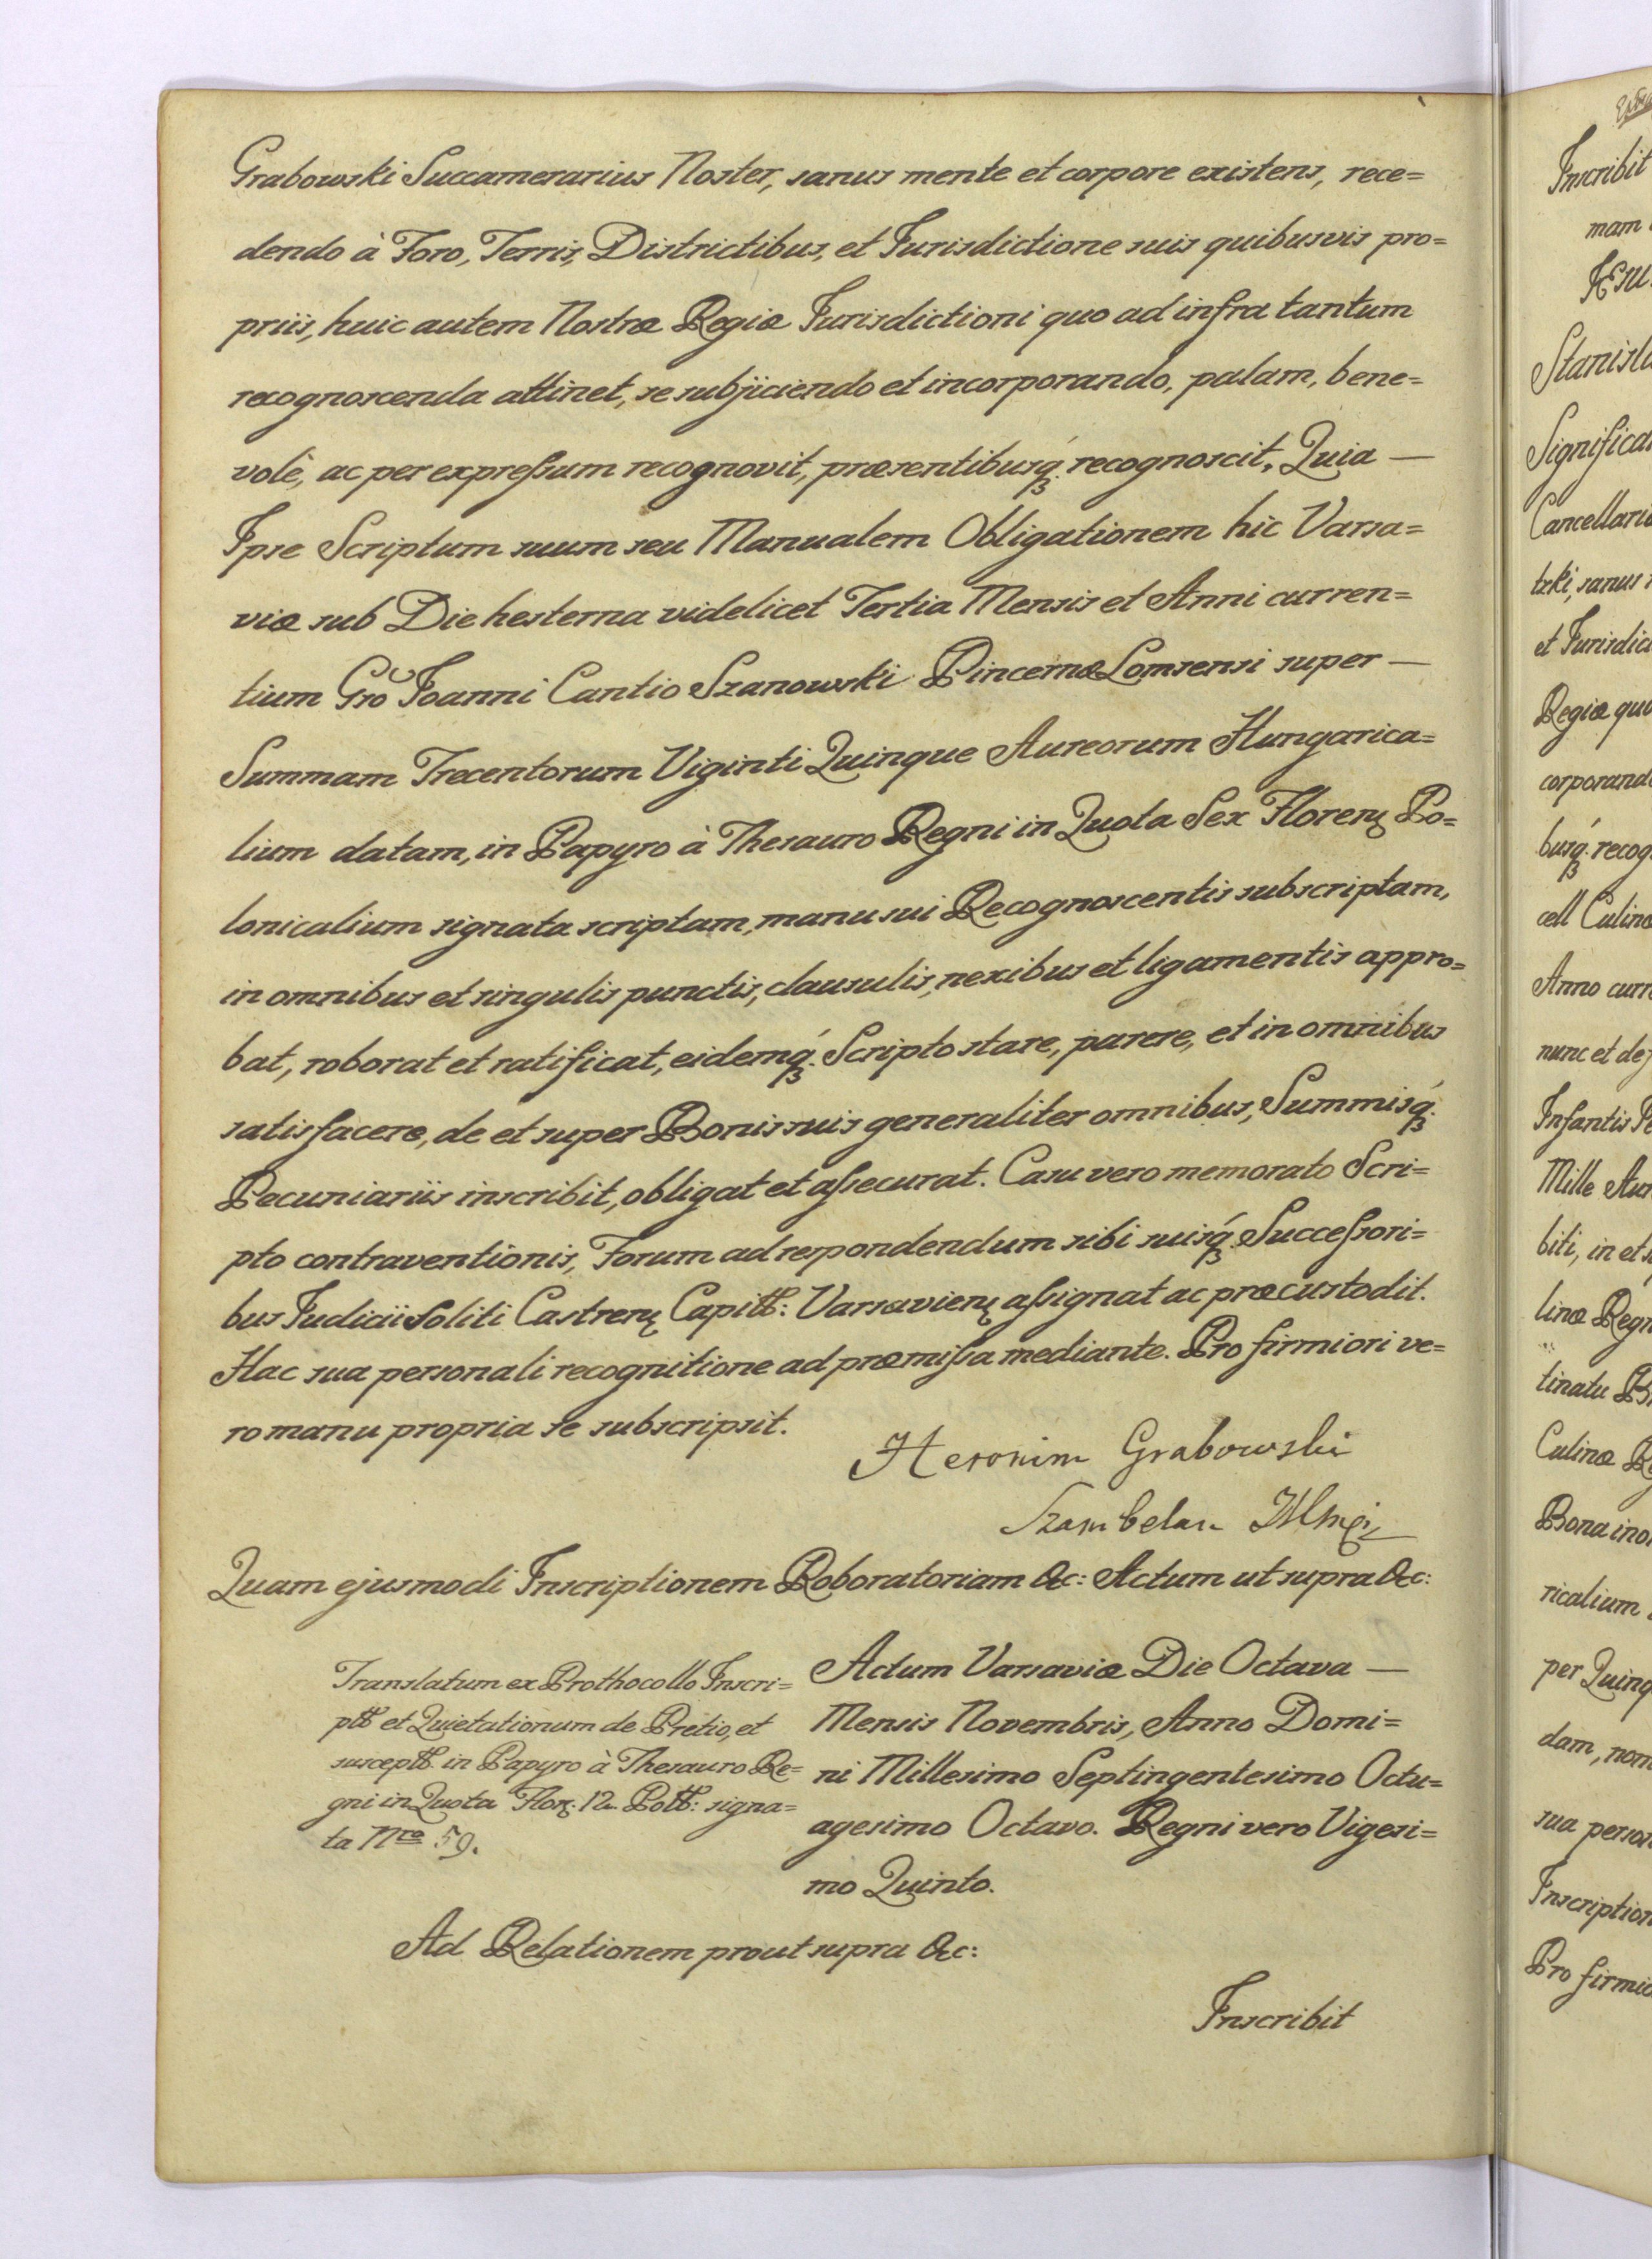 Grabowski Succamerarius Noster, sanus mente et corpore existens, rece=
dendo à Foro, Terris, Districtibus, et Jurisdictione suis quibusvis pro=
priis, huic autem Nostræ Regiæ Jurisdictioni quo ad infra tantum
recognoscenda attinet, se subjiciendo et incorporando, palam, bene=
volè, ac per expreſsum recognovit, præsentibusq́ꝫ recognoscit, Quia —
Ipse Scriptum suum seu Manualem Obligationem hic Varsa=
viæ sub Die hesterna videlicet Tertia Mensis et Anni curren=
tium Gro Joanni Cantio Szanowski Pincernæ Lomsensi super —
Summam Trecentorum Viginti Quinque Aureorum Hungarica=
lium datam, in Papyro à Thesauro Regni in Quota Sex Florenꝝ Po=
lonicalium signata scriptam, manu sui Recognoscentis subscriptam,
in omnibus et singulis punctis, clausulis, nexibus et ligamentis appro=
bat, roborat et ratificat, eidemq́ꝫ Scripto stare, parere, et in omnibus
satisfacere, de et super Bonis suis generaliter omnibus, Summisq́ꝫ
Pecuniariis inscribit, obligat et aſsecurat. Casu vero memorato Scri=
pto contraventionis, Forum ad respondendum sibi suisq́ꝫ Succeſsori=
bus Judicii Soliti Castrenꝝ Capitt: Varsavienꝝ aſsignat ac præcustodit.
Hac sua personali recognitione ad præmiſsa mediante. Pro firmiori ve=
ro manu propria se subscripsit.
Heronim Grabowski
Szambelan
Quam ejusmodi Inscriptionem Roboratoriam &c: Actum ut supra &c:
Translatum ex Prothocollo Inscri=
ptt et Quietationum de Pretio, et
susceptt in Papyro à Thesauro Re=
gni in Quota Florꝝ. 12. Poltt: signa=
ta Nro 59.
Actum Varsaviæ Die Octava —
Mensis Novembris, Anno Domi=
ni Millesimo Septingentesimo Octu=
agesimo Octavo. Regni vero Vigesi=
mo Quinto.
Ad Relationem prout supra &c:
Inscribit
Inscribit
mam
Stanisla
Significa
Cancellari
tzki, sanus
et Jurisdic
Regiæ quo
corporand
busq́ꝫ recog
cell Culinæ
Anno curr
nunc et de
Infantis
Mille Aur
biti, in et
linæ Regn
tinatu
Culinæ
Bona in o
ricalium
per Quinq
dam, non
sua person
Inscription
Pro firmio